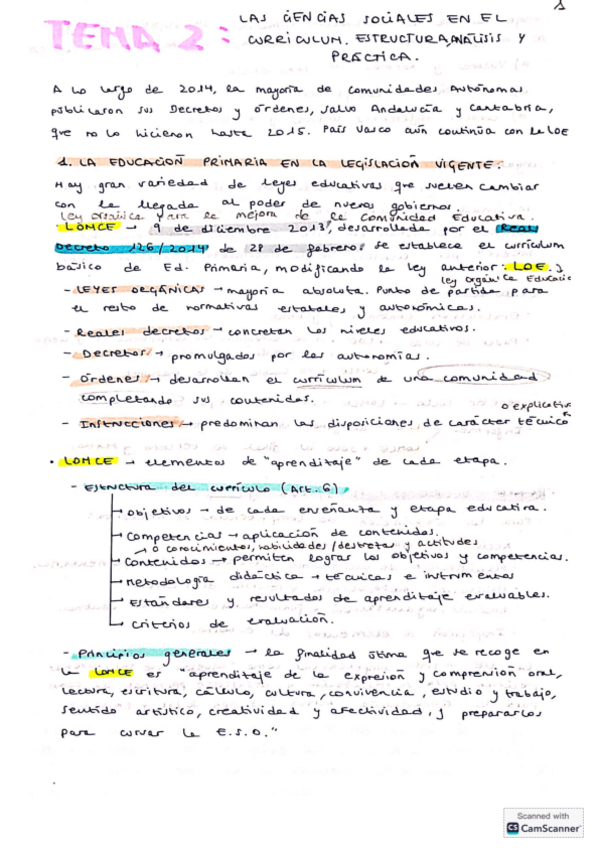 1
TEMA 2: LAS CIENCIAS SOCIALES EN EL
CURRICULUM. ESTRUCTURA, ANÁLISIS Y
PRÁCTICA.
A lo largo de 2014, la mayoría de comunidades Autónomas
publicaron sus Decretos y órdenes, salvo Andalucía y Cantabria,
que no lo hicieron hasta 2015. País Vasco aún continúa con la LOE
1. LA EDUCACIÓN PRIMARIA EN LA LEGISLACIÓN VIGENTE:
Hay gran variedad de leyes educativas que suelen cambiar
con la llegada al poder de nuevos gobiernos.
Ley orgánica para la mejora de la Comunidad Educativa.
· LOMCE → 9 de diciembre 2013, desarrollada por el Real
Decreto 126/2014 de 28 de febrero: se establece el currículum
básico de Ed. Primaria, modificando la ley anterior: LOE.
Ley orgánica Educación
- LEYES ORGÁNICAS → mayoría absoluta. Punto de partida para
el resto de normativas estatales y autonómicas.
- Reales decretos → concretan los niveles educativos.
- Decretos → promulgados por las autonomías.
- Órdenes → desarrollan el currículum de una comunidad
completando sus contenidos.
o explicativo
- Instrucciones → predominan las disposiciones de carácter técnico
· LOMCE → elementos de "aprendizaje" de cada etapa.
- Estructura del currículo (Art. 6)
→ Objetivos → de cada enseñanza y etapa educativa.
→ Competencias → aplicación de contenidos.
→ o conocimientos, habilidades/destrezas y actitudes
→ Contenidos → permiten lograr los objetivos y competencias.
→ Metodología didáctica → técnicas e instrumentos
→ Estándares y resultados de aprendizaje evaluables.
→ Criterios de evaluación.
- Principios generales → la finalidad última que se recoge en
la LOMCE es "aprendizaje de la expresión y comprensión oral,
lectura, escritura, cálculo, cultura, convivencia, estudio y trabajo,
sentido artístico, creatividad y afectividad, y prepararlos
para cursar la E.S.O."
Scanned with
CS CamScanner